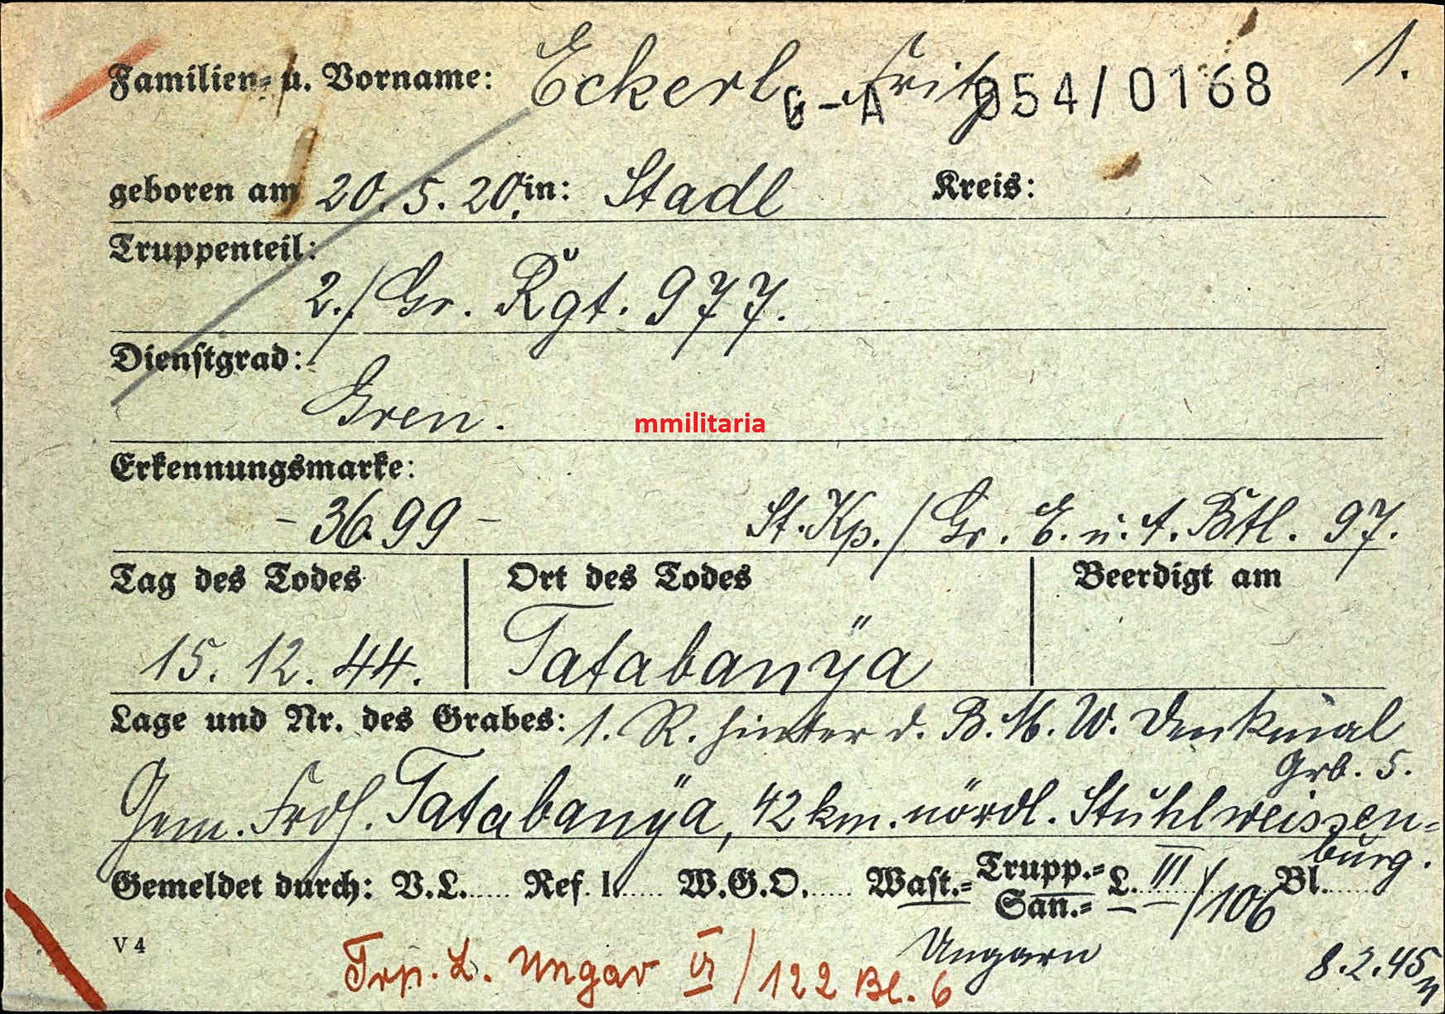 1.
Familien- u. Vorname: Eckerl, Fritz
G-A 054/0168
geboren am 20.5.20. in: Stadl Kreis:
Truppenteil:
2./Gr. Rgt. 977.
Dienstgrad:
Gren.
mmilitaria
Erkennungsmarke:
- 3699 - St.Kp./Gr. E. u. A. Btl. 97.
Tag des Todes Ort des Todes Beerdigt am
15.12.44. Tatabanÿa
Lage und Nr. des Grabes: 1. R. hinter d. B. M. W. Denkmal
Grb. 5.
Gem. Frdh. Tatabanÿa, 42 km. nördl. Stuhlweissen-
burg.
Gemeldet durch: V.L..... Ref. I..... W.G.O..... Wast.= Trupp.= San.= L. III/106 Bl.....
Ungarn
V 4
Trp. L. Ungar VI/122 Bl. 6
8.2.45